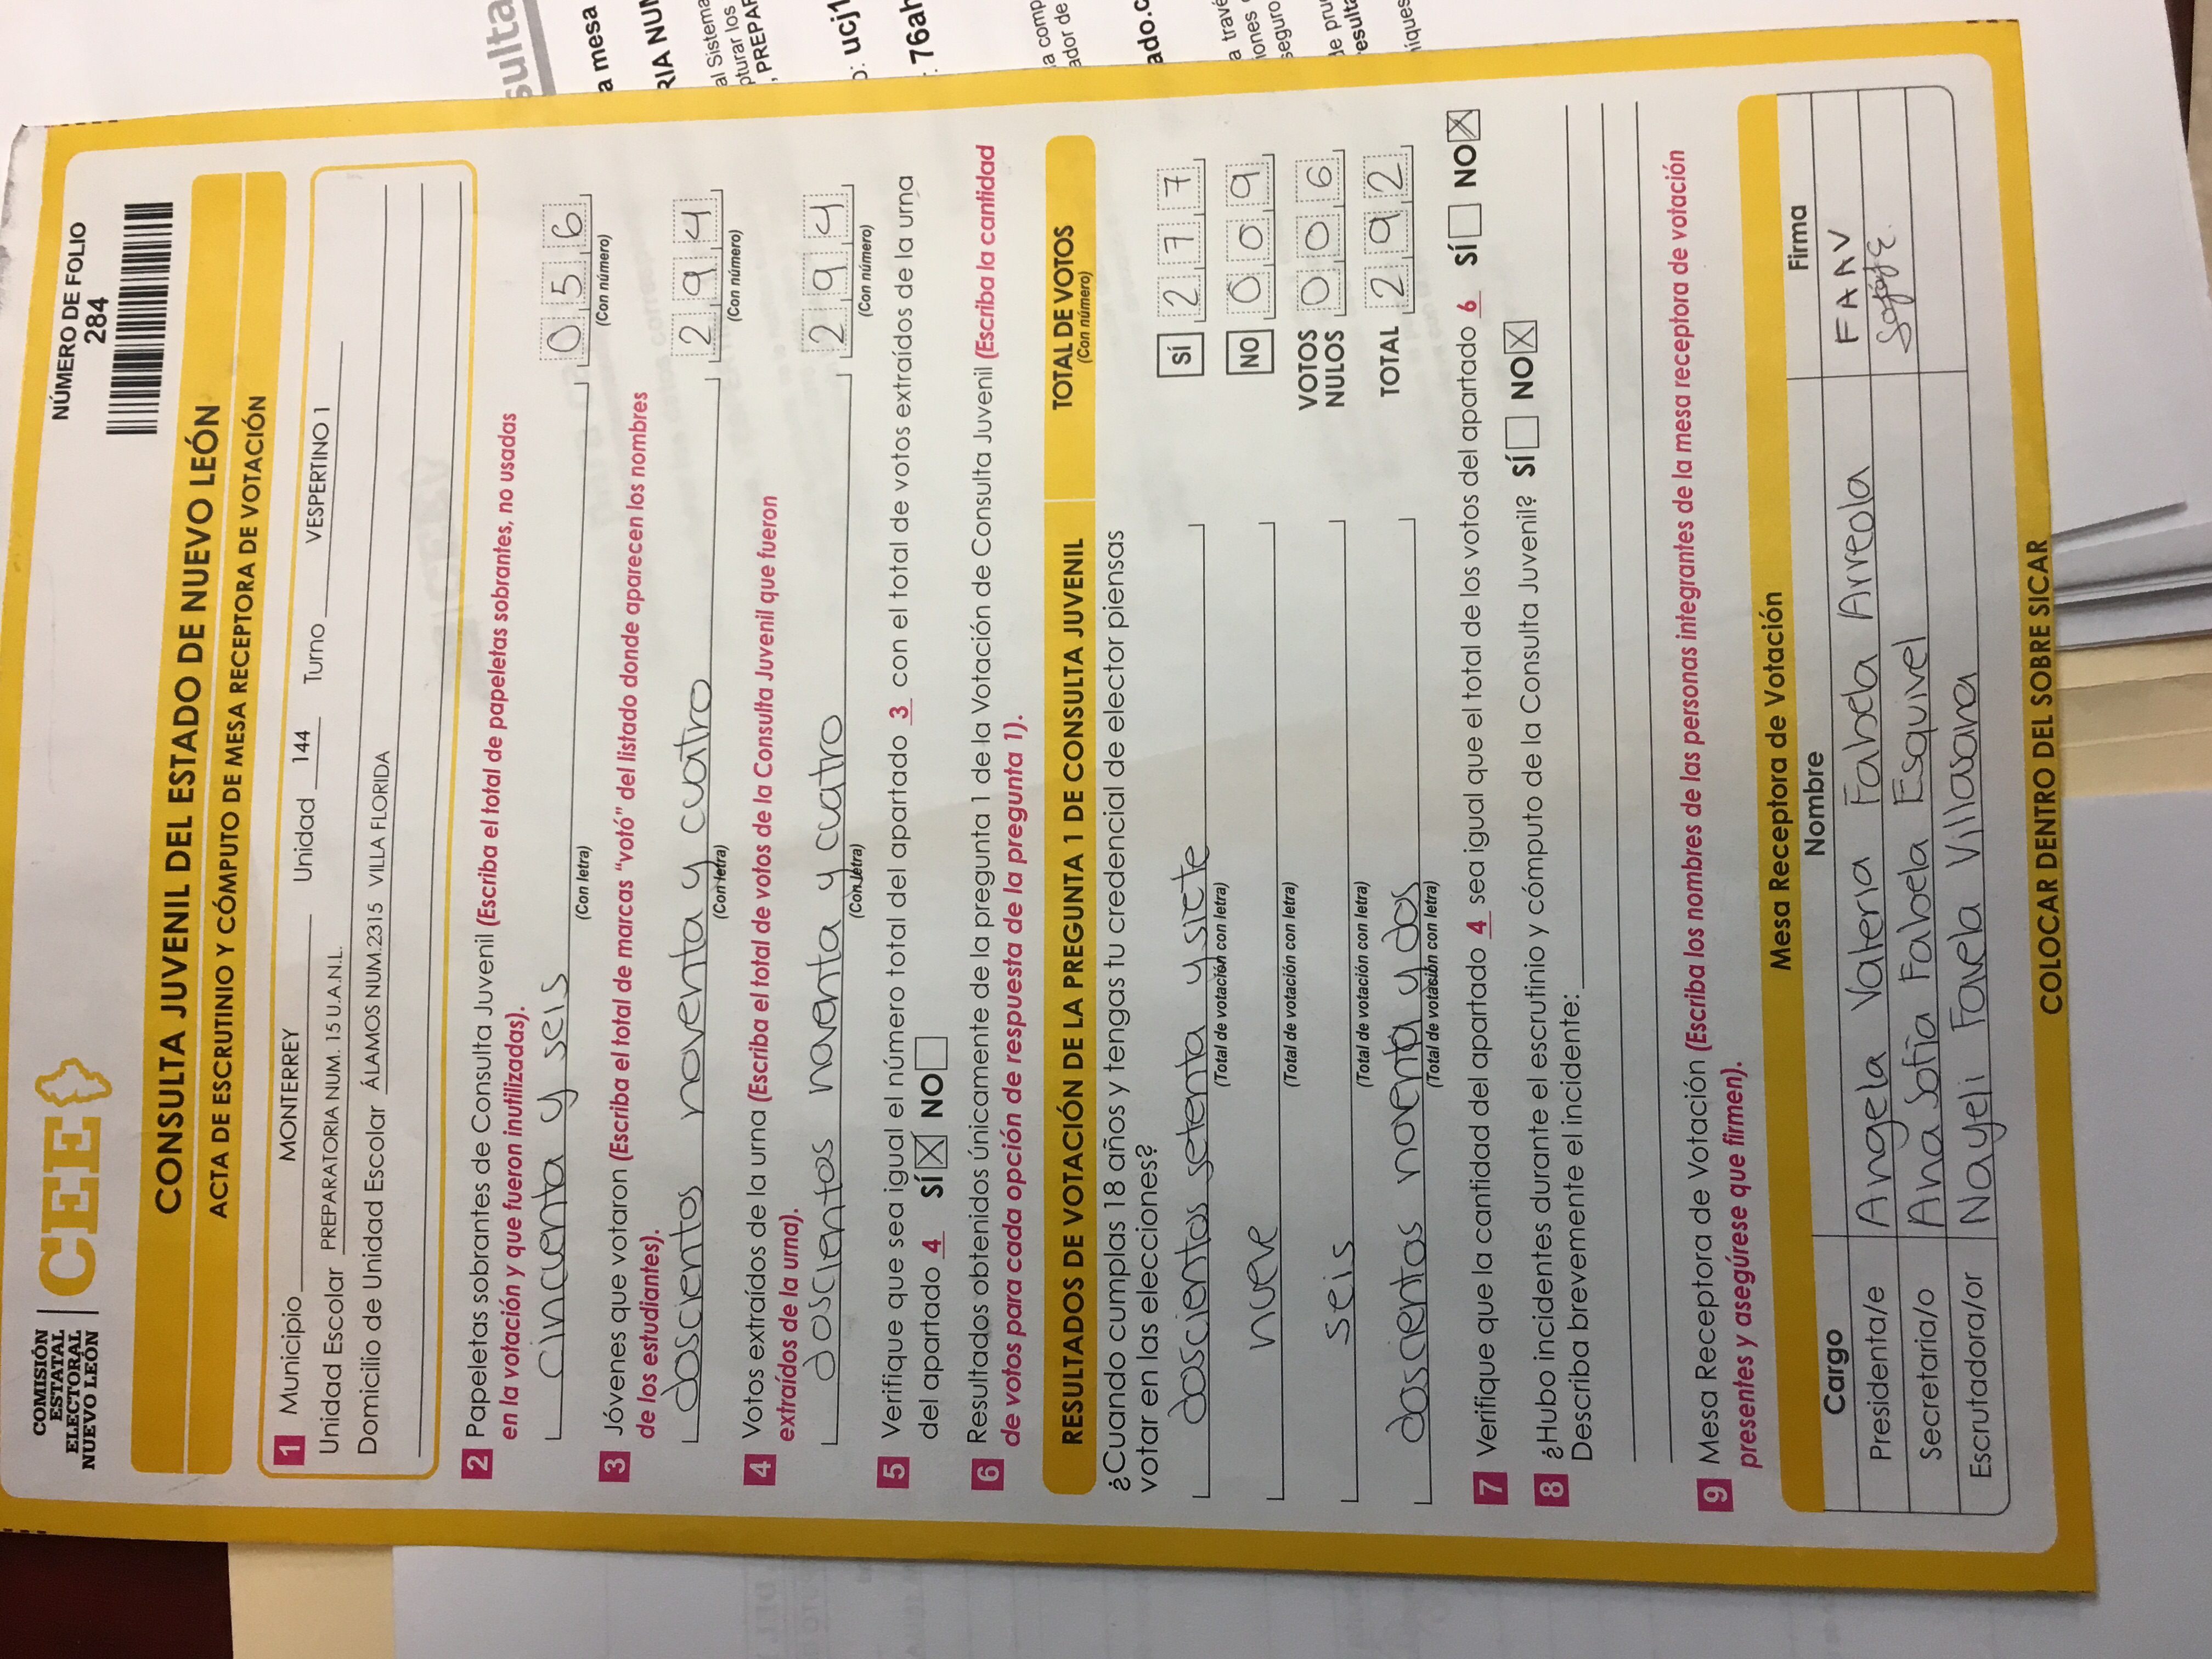 COMISIÓN
ESTATAL
ELECTORAL
NUEVO LEÓN
CEE
NÚMERO DE FOLIO
284
CONSULTA JUVENIL DEL ESTADO DE NUEVO LEÓN
ACTA DE ESCRUTINIO Y CÓMPUTO DE MESA RECEPTORA DE VOTACIÓN
1 Municipio MONTERREY Unidad 144 Turno VESPERTINO 1
Unidad Escolar PREPARATORIA NUM. 15 U.A.N.L.
Domicilio de Unidad Escolar ÁLAMOS NUM.2315 VILLA FLORIDA
2 Papeletas sobrantes de Consulta Juvenil (Escriba el total de papeletas sobrantes, no usadas
en la votación y que fueron inutilizadas).
cincuenta y seis 0 5 6
(Con letra) (Con número)
3 Jóvenes que votaron (Escriba el total de marcas "votó" del listado donde aparecen los nombres
de los estudiantes).
doscientos noventa y cuatro 2 9 4
(Con letra) (Con número)
4 Votos extraídos de la urna (Escriba el total de votos de la Consulta Juvenil que fueron
extraídos de la urna).
doscientos noventa y cuatro 2 9 4
(Con letra) (Con número)
5 Verifique que sea igual el número total del apartado 3 con el total de votos extraídos de la urna
del apartado 4 SÍ X NO
6 Resultados obtenidos únicamente de la pregunta 1 de la Votación de Consulta Juvenil (Escriba la cantidad
de votos para cada opción de respuesta de la pregunta 1).
RESULTADOS DE VOTACIÓN DE LA PREGUNTA 1 DE CONSULTA JUVENIL TOTAL DE VOTOS
(Con número)
¿Cuando cumplas 18 años y tengas tu credencial de elector piensas
votar en las elecciones?
doscientos setenta y siete SÍ 2 7 7
(Total de votación con letra)
nueve NO 0 0 9
(Total de votación con letra)
seis VOTOS NULOS 0 0 6
(Total de votación con letra)
doscientos noventa y dos TOTAL 2 9 2
(Total de votación con letra)
7 Verifique que la cantidad del apartado 4 sea igual que el total de los votos del apartado 6 SÍ NO X
8 ¿Hubo incidentes durante el escrutinio y cómputo de la Consulta Juvenil? SÍ NO X
Describa brevemente el incidente:
9 Mesa Receptora de Votación (Escriba los nombres de las personas integrantes de la mesa receptora de votación
presentes y asegúrese que firmen).
Mesa Receptora de Votación
Cargo Nombre Firma
Presidenta/e Angela Valeria Fabela Arreola FAAV
Secretaria/o Ana Sofía Fabela Esquivel Sofía E.
Escrutadora/or Nayeli Favela Villasana
COLOCAR DENTRO DEL SOBRE SICAR
sulta
a mesa
al Sistema
pturar los
, PREPAR
: ucj1
: 76ah
a comp
ador de
ado.c
a travé
iones
seguro
de pru
esulta
íques